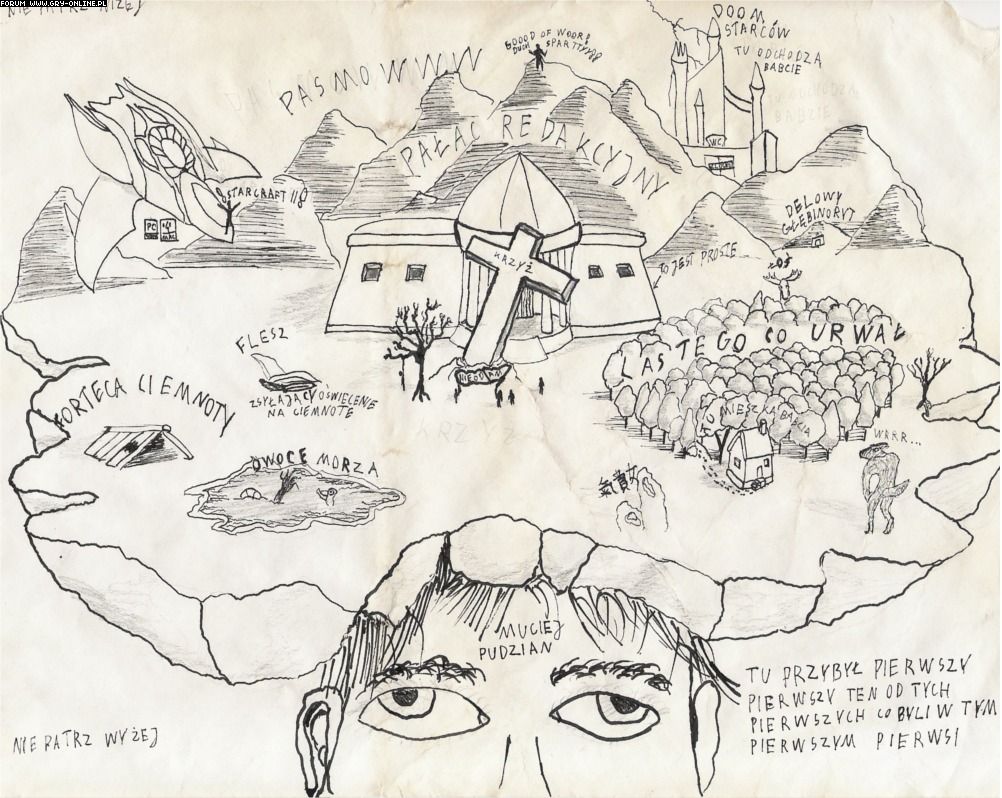 FORUM WWW.GRY-ONLINE.PL
NIE PATRZ NIŻEJ
PASMO WWW
GOOOD OF WOORB
DUCH SPARTTYYYY
DOOM
STARCÓW
TU ODCHODZĄ
BABCIE
TU ODCHODZĄ
BABCIE
WC
PAŁAC REDAKCYJNY
STARCRAFT
PC
MAC
DELOWY
GŁĘBINORYT
TO JEST PROSTE
KRZYŻ
FLESZ
ZSYŁAJĄCY OŚWIECENIE
NA CIEMNOTĘ
LAS TEGO CO URWAŁ
FORTECA CIEMNOTY
TU MIESZKA BABCIA
WRRR...
OWOCE MORZA
KRZYŻ
MUCIĘJ
PUDZIAN
TU PRZYBYŁ PIERWSZY
PIERWSZY TEN OD TYCH
PIERWSZYCH CO BYLI W TYM
PIERWSZYM PIERWSI
NIE PATRZ WYŻEJ